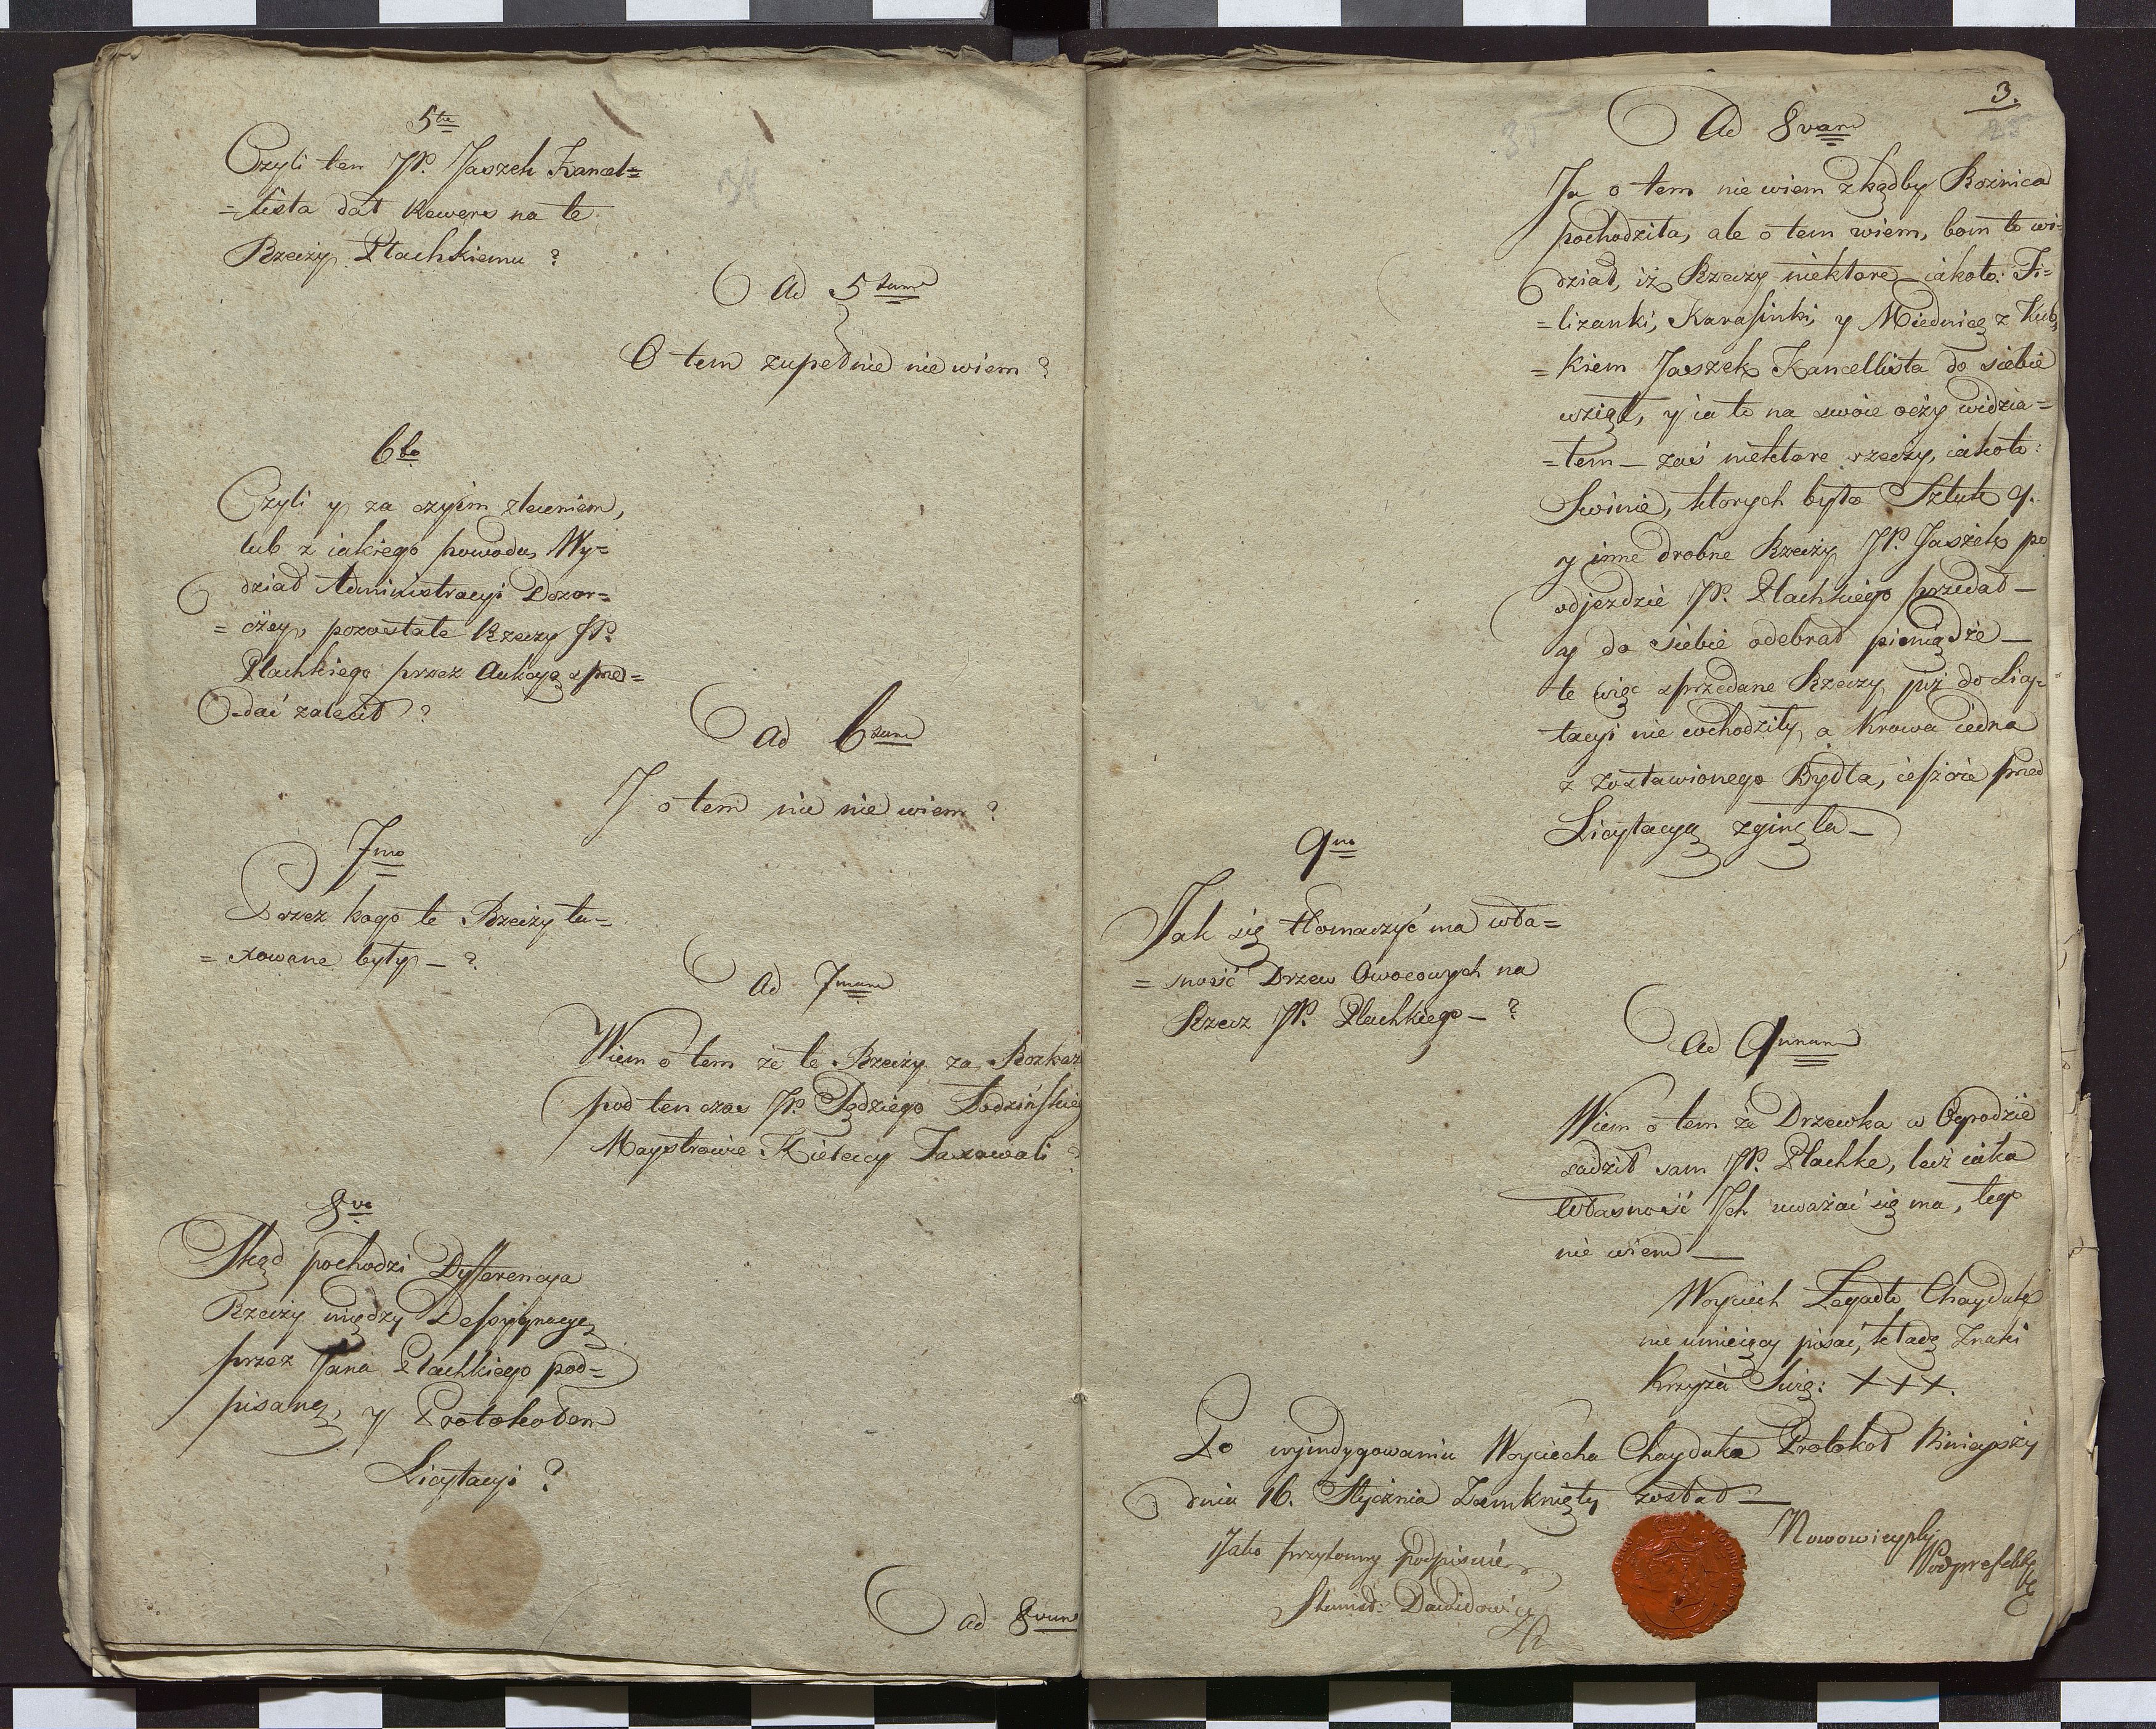 5te
Czyli ten JP. Jaszek Kancel=
=lista dał Rewers na te
Rzeczy Plachkiemu ?
Ad 5tum
O tem zupełnie nie wiem ?
6to
Czyli y za czyim zleceniem,
lub z iakiego powodu Wy=
dział Administracyi Dozor=
=czey, pozostałe Rzeczy JP.
Plachkiego przez Aukcyą sprze=
dać zalecił ?
Ad 6tum
J o tem nic nie wiem ?
7mo
Przez kogo te Rzeczy ta=
=xowane były — ?
Ad 7mum
Wiem o tem że te Rzeczy za Rozkaz
pod ten czas JP. Sędziego
Maystrowie Kieleccy Taxowali ?
8vo
Skąd pochodzi Dyfferencya
Rzeczy między
przez Jana Plachkiego pod=
pisaną, y Protokołem
Licytacyi ?
ad 8vum
34
3.
35
25
Ad 8vum
Ja o tem nie wiem zkądby Rożnica
pochodziła, ale o tem wiem, bom to wi=
dział, iż Rzeczy niektore iakoto: Fi=
=liżanki, Karafinki, y Miednicę z Kub,
=kiem Jaszek Kancellista do siebie
wziął, y ia to na swoie oczy widzia=
=łem — zaś niektore rzeczy, iakoto:
Swinie, ktorych było Sztuk 9.
y inne drobne Rzeczy JP. Jaszek po
odjezdzie JP. Plachkiego przedał —
y do siebie odebrał pieniądze —
te więc sprzedane Rzeczy już do Licy=
tacyi nie wchodziły, a Krowa iedna
z zostawionego Bydła, ieszcze przed
Licytacyą zginęła —
9no
Jak się tłomaczyć ma wła=
=sność Drzew Owocowych na
Rzecz JP. Plachkiego — ?
Ad 9num
Wiem o tem że Drzewka w Ogrodzie
sadził sam JP. Plachke, lecz iaka
własność Jch uważać się ma, tego
nie wiem —
Woyciech Chayduk
nie umieiący pisać, kładę Znaki
Krzyża Swię: + + +.
Po wyindygowaniu Woyciecha Chayduka Protokoł Ninieyszy
dnia 16. Stycznia Zamknięty został —
Jako przytomny podpisuie
Stanisł: Dawidowicz
Nowowieyski
Podprefekt